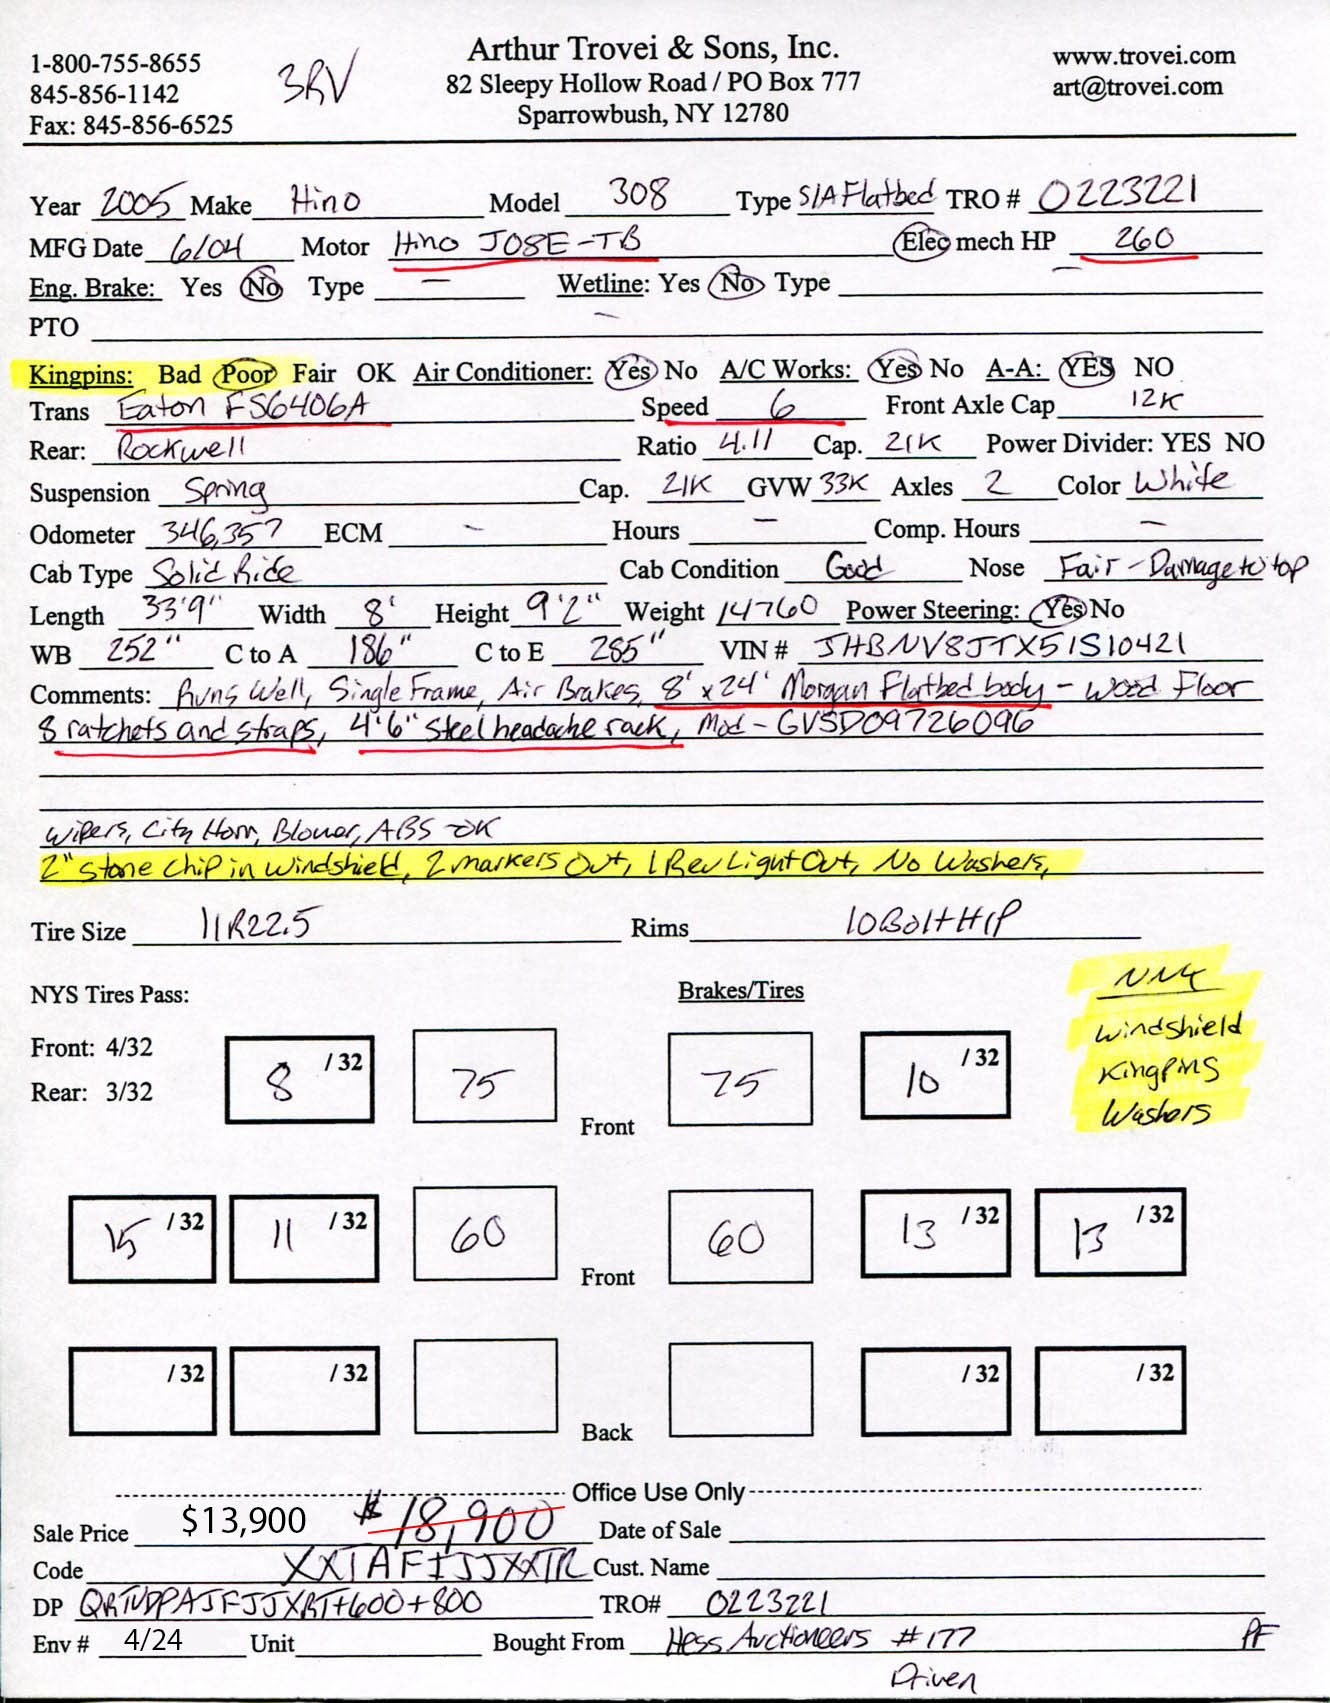 1-800-755-8655
845-856-1142
Fax: 845-856-6525
3RV
Arthur Trovei & Sons, Inc.
82 Sleepy Hollow Road / PO Box 777
Sparrowbush, NY 12780
www.trovei.com
art@trovei.com
Year 2005 Make Hino Model 308 Type S/A Flatbed TRO # 0223221
MFG Date 6/04 Motor Hino J08E-TB Elec mech HP 260
Eng. Brake: Yes No Type — Wetline: Yes No Type
PTO
Kingpins: Bad Poor Fair OK Air Conditioner: Yes No A/C Works: Yes No A-A: YES NO
Trans Eaton FS6406A Speed 6 Front Axle Cap 12K
Rear: Rockwell Ratio 4.11 Cap. 21K Power Divider: YES NO
Suspension Spring Cap. 21K GVW 33K Axles 2 Color White
Odometer 346,357 ECM — Hours — Comp. Hours —
Cab Type Solid Ride Cab Condition Good Nose Fair - Damage to top
Length 33'9" Width 8' Height 9'2" Weight 14760 Power Steering: Yes No
WB 252" C to A 186" C to E 285" VIN # JHBNV8JTX51S10421
Comments: Runs Well, Single Frame, Air Brakes, 8' x 24' Morgan Flatbed body - Wood Floor
8 ratchets and straps, 4'6" Steel headache rack, Mod - GVSD09726096
Wipers, City Horn, Blower, ABS - OK
2" Stone Chip in Windshield, 2 markers Out, 1 Rev Light Out, No Washers,
Tire Size 11R22.5 Rims 10 Bolt H/P
NYS Tires Pass: Brakes/Tires
Front: 4/32
Rear: 3/32
8 /32 75 Front 75 10 /32
Windshield
Kingpins
Washers
15 /32 11 /32 60 Front 60 13 /32 13 /32
/32 /32 Back /32 /32
Office Use Only
Sale Price $13,900 $18,900 Date of Sale
Code XXTAFIJJXXTR Cust. Name
DP QRTVDPPAJFJJXRT+600+800 TRO# 0223221
Env # 4/24 Unit Bought From Hess Auctioneers #177 PF
Driven